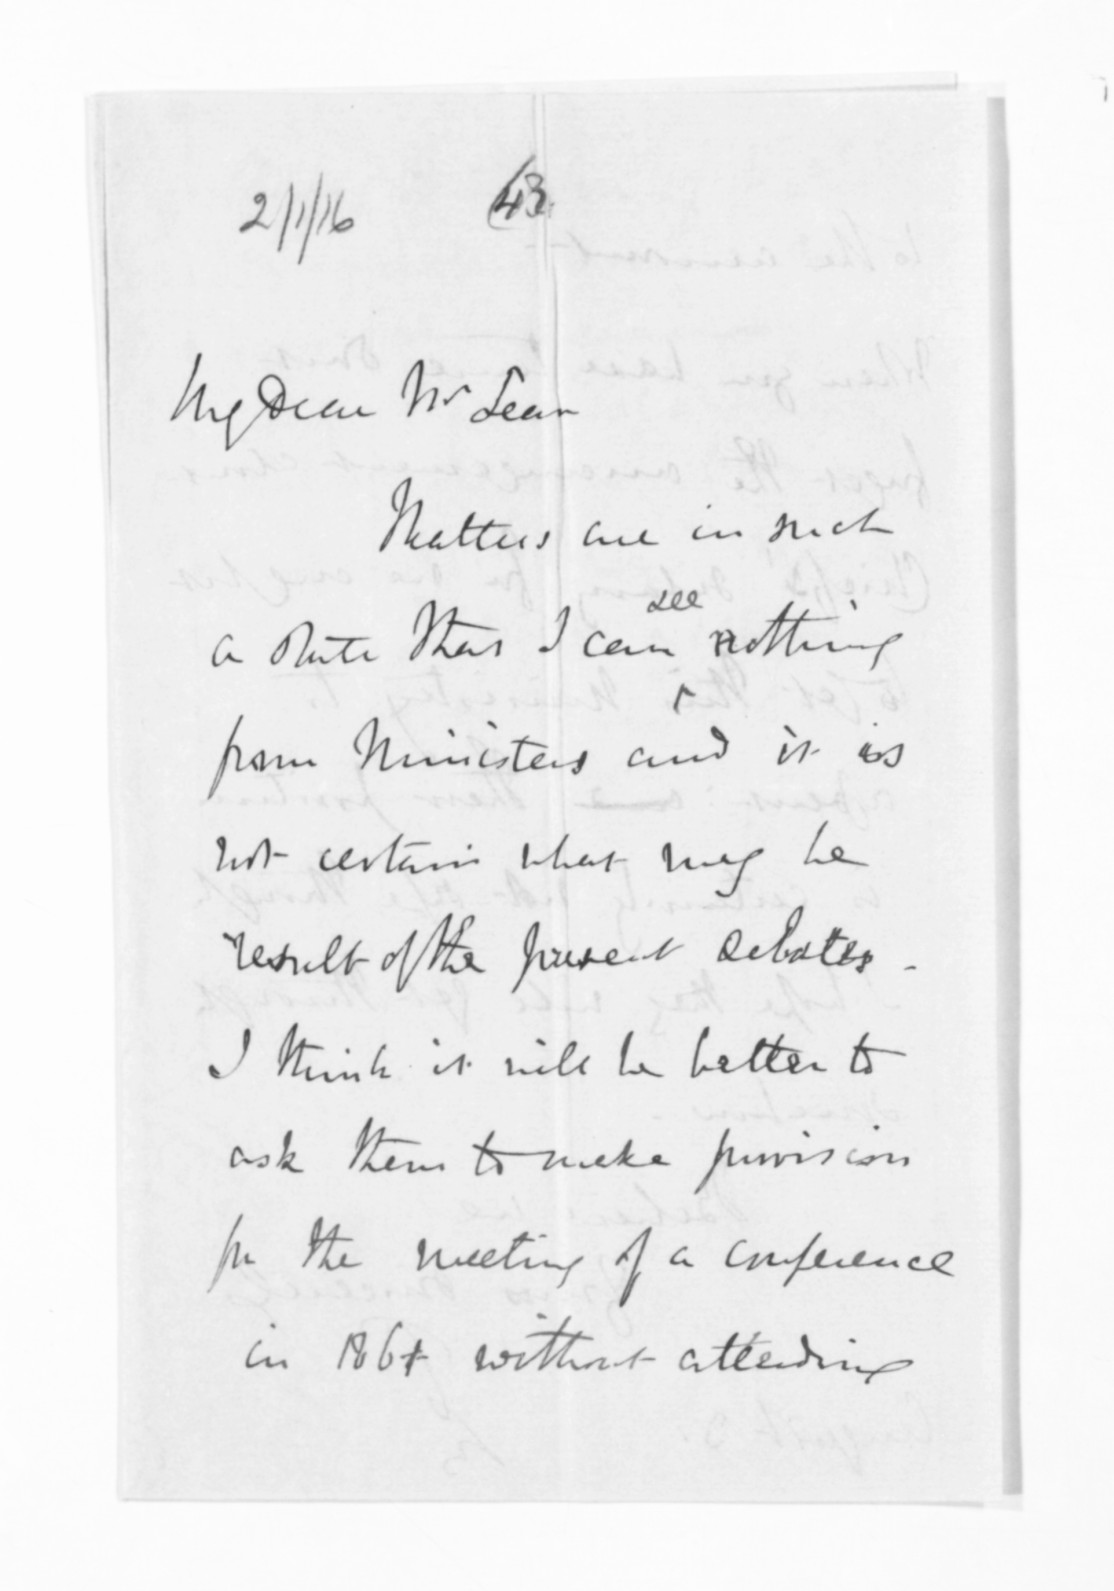 2/1/16
43
My Dear Mr Lean
Matters are in such
see
a state that I can nothing
from Ministers and it is
not certain what may be
result of the present debates -
I think it will be better to
ask them to make provision
for the meeting of a conference
in 1861 without attending